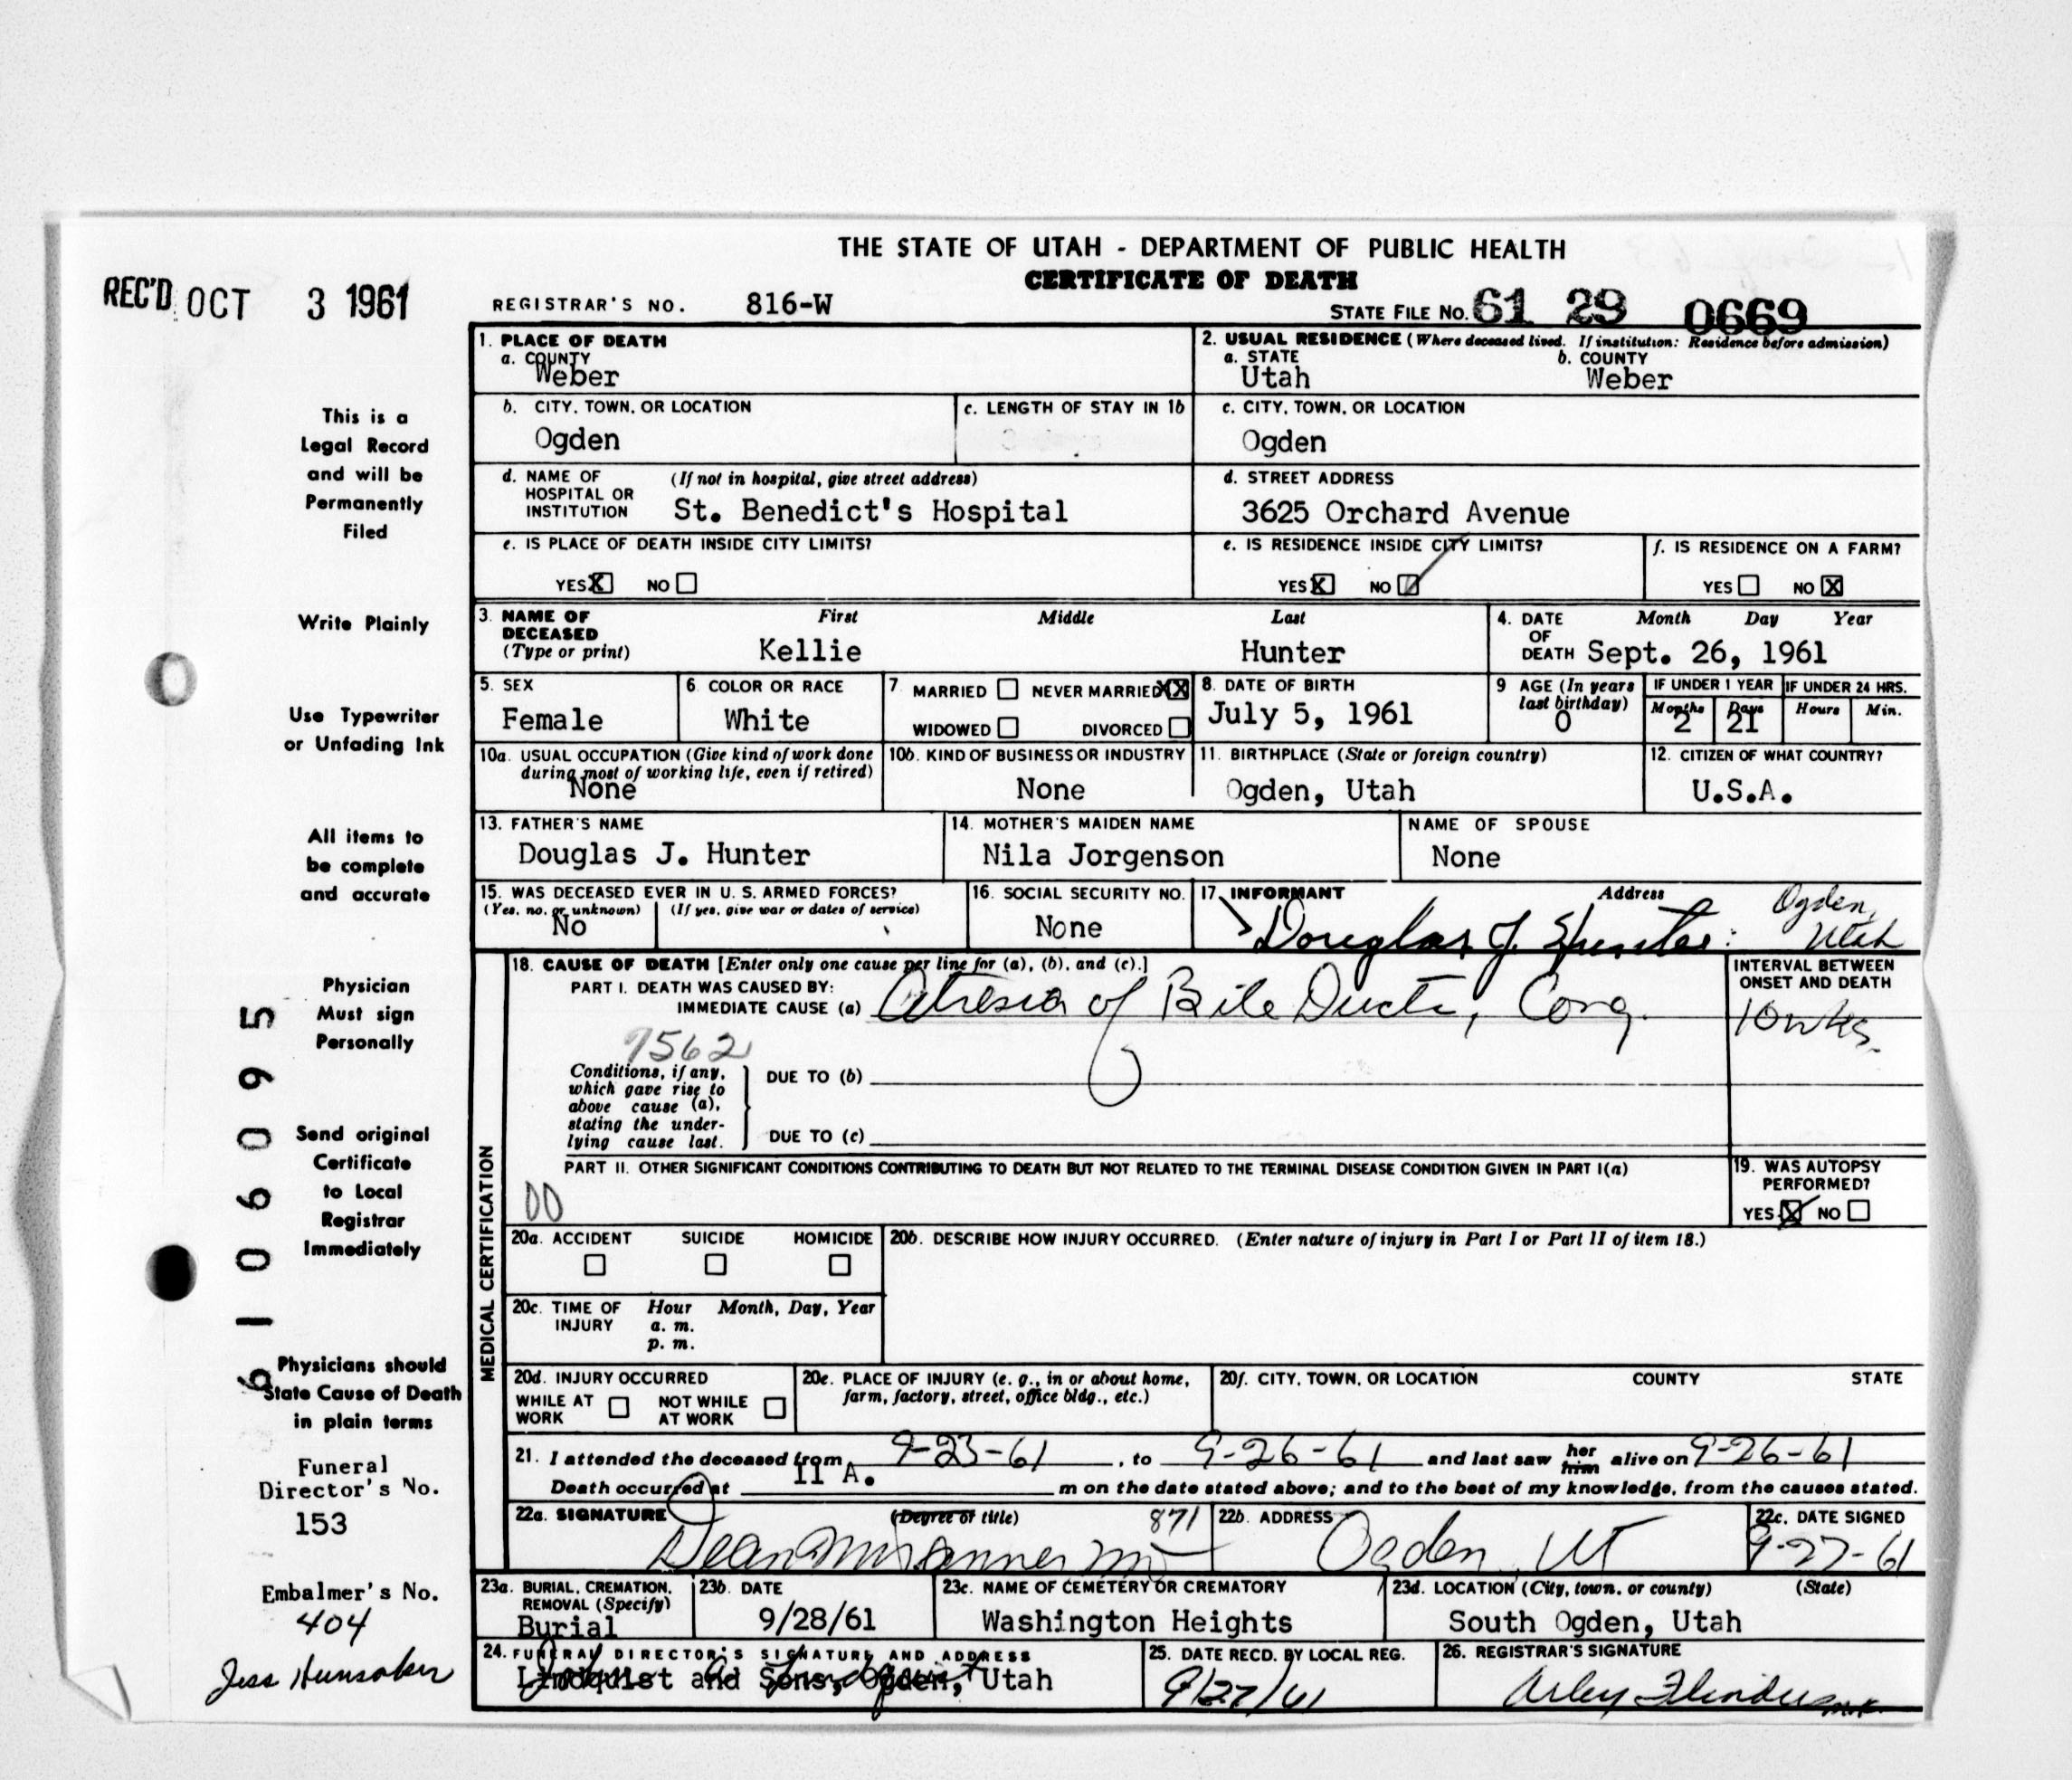 THE STATE OF UTAH - DEPARTMENT OF PUBLIC HEALTH
CERTIFICATE OF DEATH
REC'D OCT 3 1961
REGISTRAR'S NO. 816-W
STATE FILE No. 61 29 0669
1. PLACE OF DEATH
a. COUNTY
Weber
2. USUAL RESIDENCE (Where deceased lived. If institution: Residence before admission)
a. STATE b. COUNTY
Utah Weber
b. CITY, TOWN, OR LOCATION
Ogden
c. LENGTH OF STAY IN 1b
c. CITY, TOWN, OR LOCATION
Ogden
d. NAME OF HOSPITAL OR INSTITUTION (If not in hospital, give street address)
St. Benedict's Hospital
d. STREET ADDRESS
3625 Orchard Avenue
e. IS PLACE OF DEATH INSIDE CITY LIMITS?
YES X NO
e. IS RESIDENCE INSIDE CITY LIMITS?
YES X NO
f. IS RESIDENCE ON A FARM?
YES NO X
3. NAME OF DECEASED (Type or print)
First Middle Last
Kellie Hunter
4. DATE OF DEATH
Month Day Year
Sept. 26, 1961
5. SEX
Female
6. COLOR OR RACE
White
7. MARRIED NEVER MARRIED XX
WIDOWED DIVORCED
8. DATE OF BIRTH
July 5, 1961
9 AGE (In years last birthday)
0
IF UNDER 1 YEAR
Months Days
2 21
IF UNDER 24 HRS.
Hours Min.
10a. USUAL OCCUPATION (Give kind of work done during most of working life, even if retired)
None
10b. KIND OF BUSINESS OR INDUSTRY
None
11. BIRTHPLACE (State or foreign country)
Ogden, Utah
12. CITIZEN OF WHAT COUNTRY?
U.S.A.
13. FATHER'S NAME
Douglas J. Hunter
14. MOTHER'S MAIDEN NAME
Nila Jorgenson
NAME OF SPOUSE
None
15. WAS DECEASED EVER IN U. S. ARMED FORCES?
(Yes, no, or unknown) (If yes, give war or dates of service)
No
16. SOCIAL SECURITY NO.
None
17. INFORMANT Address
Douglas J. Hunter Ogden, Utah
18. CAUSE OF DEATH [Enter only one cause per line for (a), (b), and (c).]
PART I. DEATH WAS CAUSED BY:
IMMEDIATE CAUSE (a) Atresia of Bile Ducts, Cong.
INTERVAL BETWEEN ONSET AND DEATH
10 wks.
7562
Conditions, if any, which gave rise to above cause (a), stating the underlying cause last.
DUE TO (b)
DUE TO (c)
PART II. OTHER SIGNIFICANT CONDITIONS CONTRIBUTING TO DEATH BUT NOT RELATED TO THE TERMINAL DISEASE CONDITION GIVEN IN PART I(a)
00
19. WAS AUTOPSY PERFORMED?
YES X NO
MEDICAL CERTIFICATION
20a. ACCIDENT SUICIDE HOMICIDE
20b. DESCRIBE HOW INJURY OCCURRED. (Enter nature of injury in Part I or Part II of item 18.)
20c. TIME OF INJURY
Hour Month, Day, Year
a. m.
p. m.
20d. INJURY OCCURRED
WHILE AT WORK NOT WHILE AT WORK
20e. PLACE OF INJURY (e. g., in or about home, farm, factory, street, office bldg., etc.)
20f. CITY, TOWN, OR LOCATION COUNTY STATE
21. I attended the deceased from 9-23-61, to 9-26-61 and last saw her him alive on 9-26-61
Death occurred at 11 A. m on the date stated above; and to the best of my knowledge, from the causes stated.
22a. SIGNATURE (Degree or title) 871
22b. ADDRESS
Ogden, Ut
22c. DATE SIGNED
9-27-61
23a. BURIAL, CREMATION, REMOVAL (Specify)
Burial
23b. DATE
9/28/61
23c. NAME OF CEMETERY OR CREMATORY
Washington Heights
23d. LOCATION (City, town, or county) (State)
South Ogden, Utah
24. FUNERAL DIRECTOR'S SIGNATURE AND ADDRESS
Lindquist and Sons, Ogden, Utah
25. DATE RECD. BY LOCAL REG.
9/27/61
26. REGISTRAR'S SIGNATURE
This is a
Legal Record
and will be
Permanently
Filed
Write Plainly
Use Typewriter
or Unfading Ink
All items to
be complete
and accurate
Physician
Must sign
Personally
Send original
Certificate
to Local
Registrar
Immediately
Physicians should
State Cause of Death
in plain terms
Funeral
Director's No.
153
Embalmer's No.
404
Jess Hunsaker
61 06095